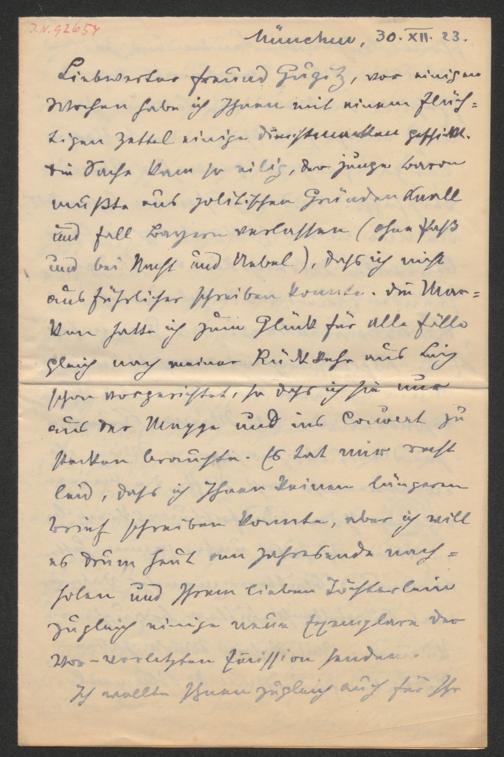 J.N. 92654
München, 30. XII. 23.
Liebwerter Freund Gugitz, vor einigen
Wochen habe ich Ihnen mit einem flüch=
tigen Zettel einige Dienstmarken geschickt.
Die Sache kam so eilig, der junge Baron
mußte aus politischen Gründen Knall
und Fall Bayern verlassen (ohne Paß
und bei Nacht und Nebel), daß ich nicht
ausführlicher schreiben konnte. Die Mar=
ken hatte ich zum Glück für alle Fälle
gleich nach meiner Rückkehr aus
schon vorgerichtet, so daß ich sie nur
aus der Mappe und ins Couvert zu
stecken brauchte. Es tat mir recht
leid, daß ich Ihnen keinen längeren
Brief schreiben konnte, aber ich will
es drum heut am Jahresende nach=
holen und Ihrem lieben Töchterlein
zugleich einige neue Exemplare der
vor-vorletzten Emission senden.
Ich wollte Ihnen zugleich auch für Ihr